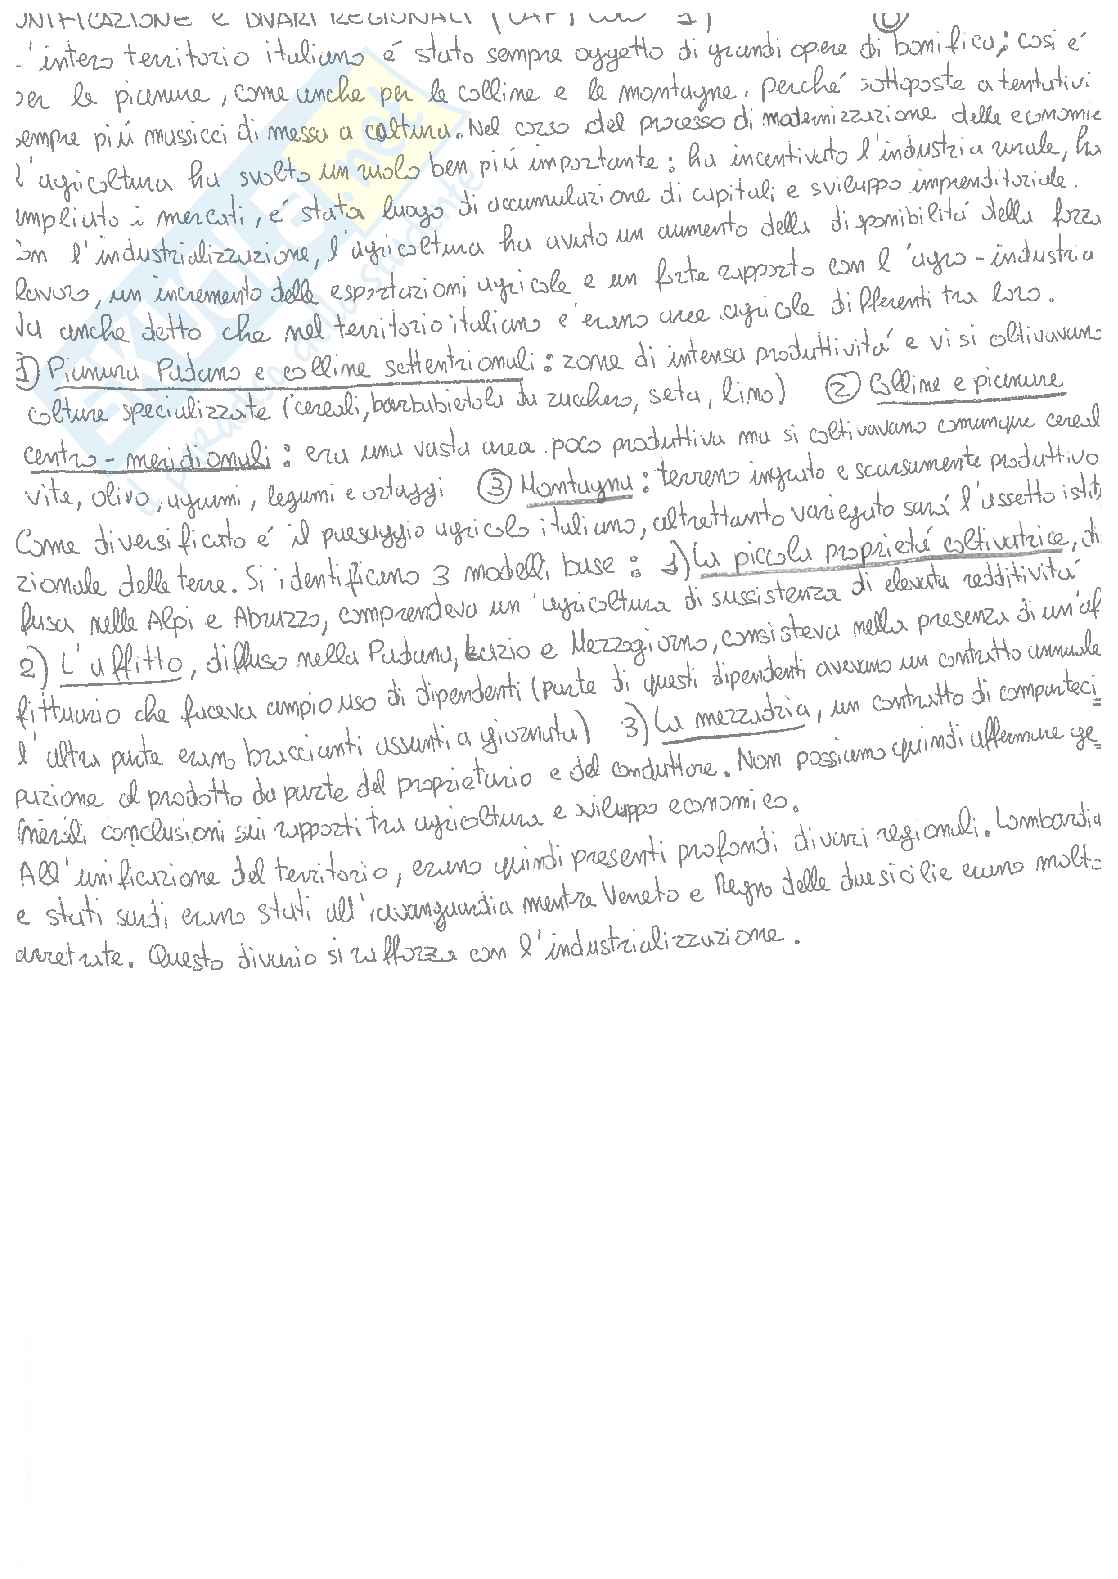 UNIFICAZIONE E DIVARI REGIONALI (CAPITOLO 1)
L'intero territorio italiano é stato sempre oggetto di grandi opere di bonifica; cosi é
per le pianure, come anche per le colline e le montagne, perché sottoposte a tentativi
sempre piú massicci di messa a coltura. Nel corso del processo di modernizzazione delle economie
l'agricoltura ha svolto un ruolo ben piú importante: ha incentivato l'industria rurale, ha
ampliato i mercati, é stata luogo di accumulazione di capitali e sviluppo imprenditoriale.
Con l'industrializzazione, l'agricoltura ha avuto un aumento della disponibilitá della forza
lavoro, un incremento delle esportazioni agricole e un forte rapporto con l'agro-industria
Va anche detto che nel territorio italiano c'erano aree agricole differenti tra loro.
1) Pianura Padana e colline settentrionali: zone di intensa produttivitá e vi si coltivavano
colture specializzate (cereali, barbabietola da zucchero, seta, lino) 2 Colline e pianure
centro-meridionali: era una vasta area poco produttiva ma si coltivavano comunque cereal
vite, olivo, agrumi, legumi e ortaggi 3 Montagna: terreno ingrato e scarsamente produttivo
Come diversificato é il paesaggio agricolo italiano, altrettanto variegato sará l'assetto istit
zionale delle terre. Si identificano 3 modelli base: 1) La piccola proprietá coltivatrice, di
fusa nelle Alpi e Abruzzo, comprendeva un'agricoltura di sussistenza di elevata redditivitá
2) L'affitto, diffuso nella Padana, Lazio e Mezzogiorno, consisteva nella presenza di un'af
fittuario che faceva ampio uso di dipendenti (parte di questi dipendenti avevano un contratto annuale
l'altra parte erano braccianti assunti a giornata) 3) La mezzadria, un contratto di comparteci
pazione al prodotto da parte del proprietario e del conduttore. Non possiamo quindi affermare ge-
nerali conclusioni sui rapporti tra agricoltura e sviluppo economico.
All'unificazione del territorio, erano quindi presenti profondi divari regionali. Lombardia
e stati sardi erano stati all'avanguardia mentre Veneto e Regno delle due sicilie erano molto
arretrate. Questo divario si rafforza con l'industrializzazione.